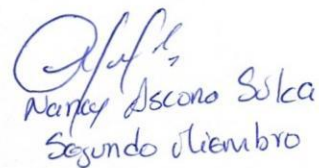 Nancy Ascono Sulca
Segundo Miembro